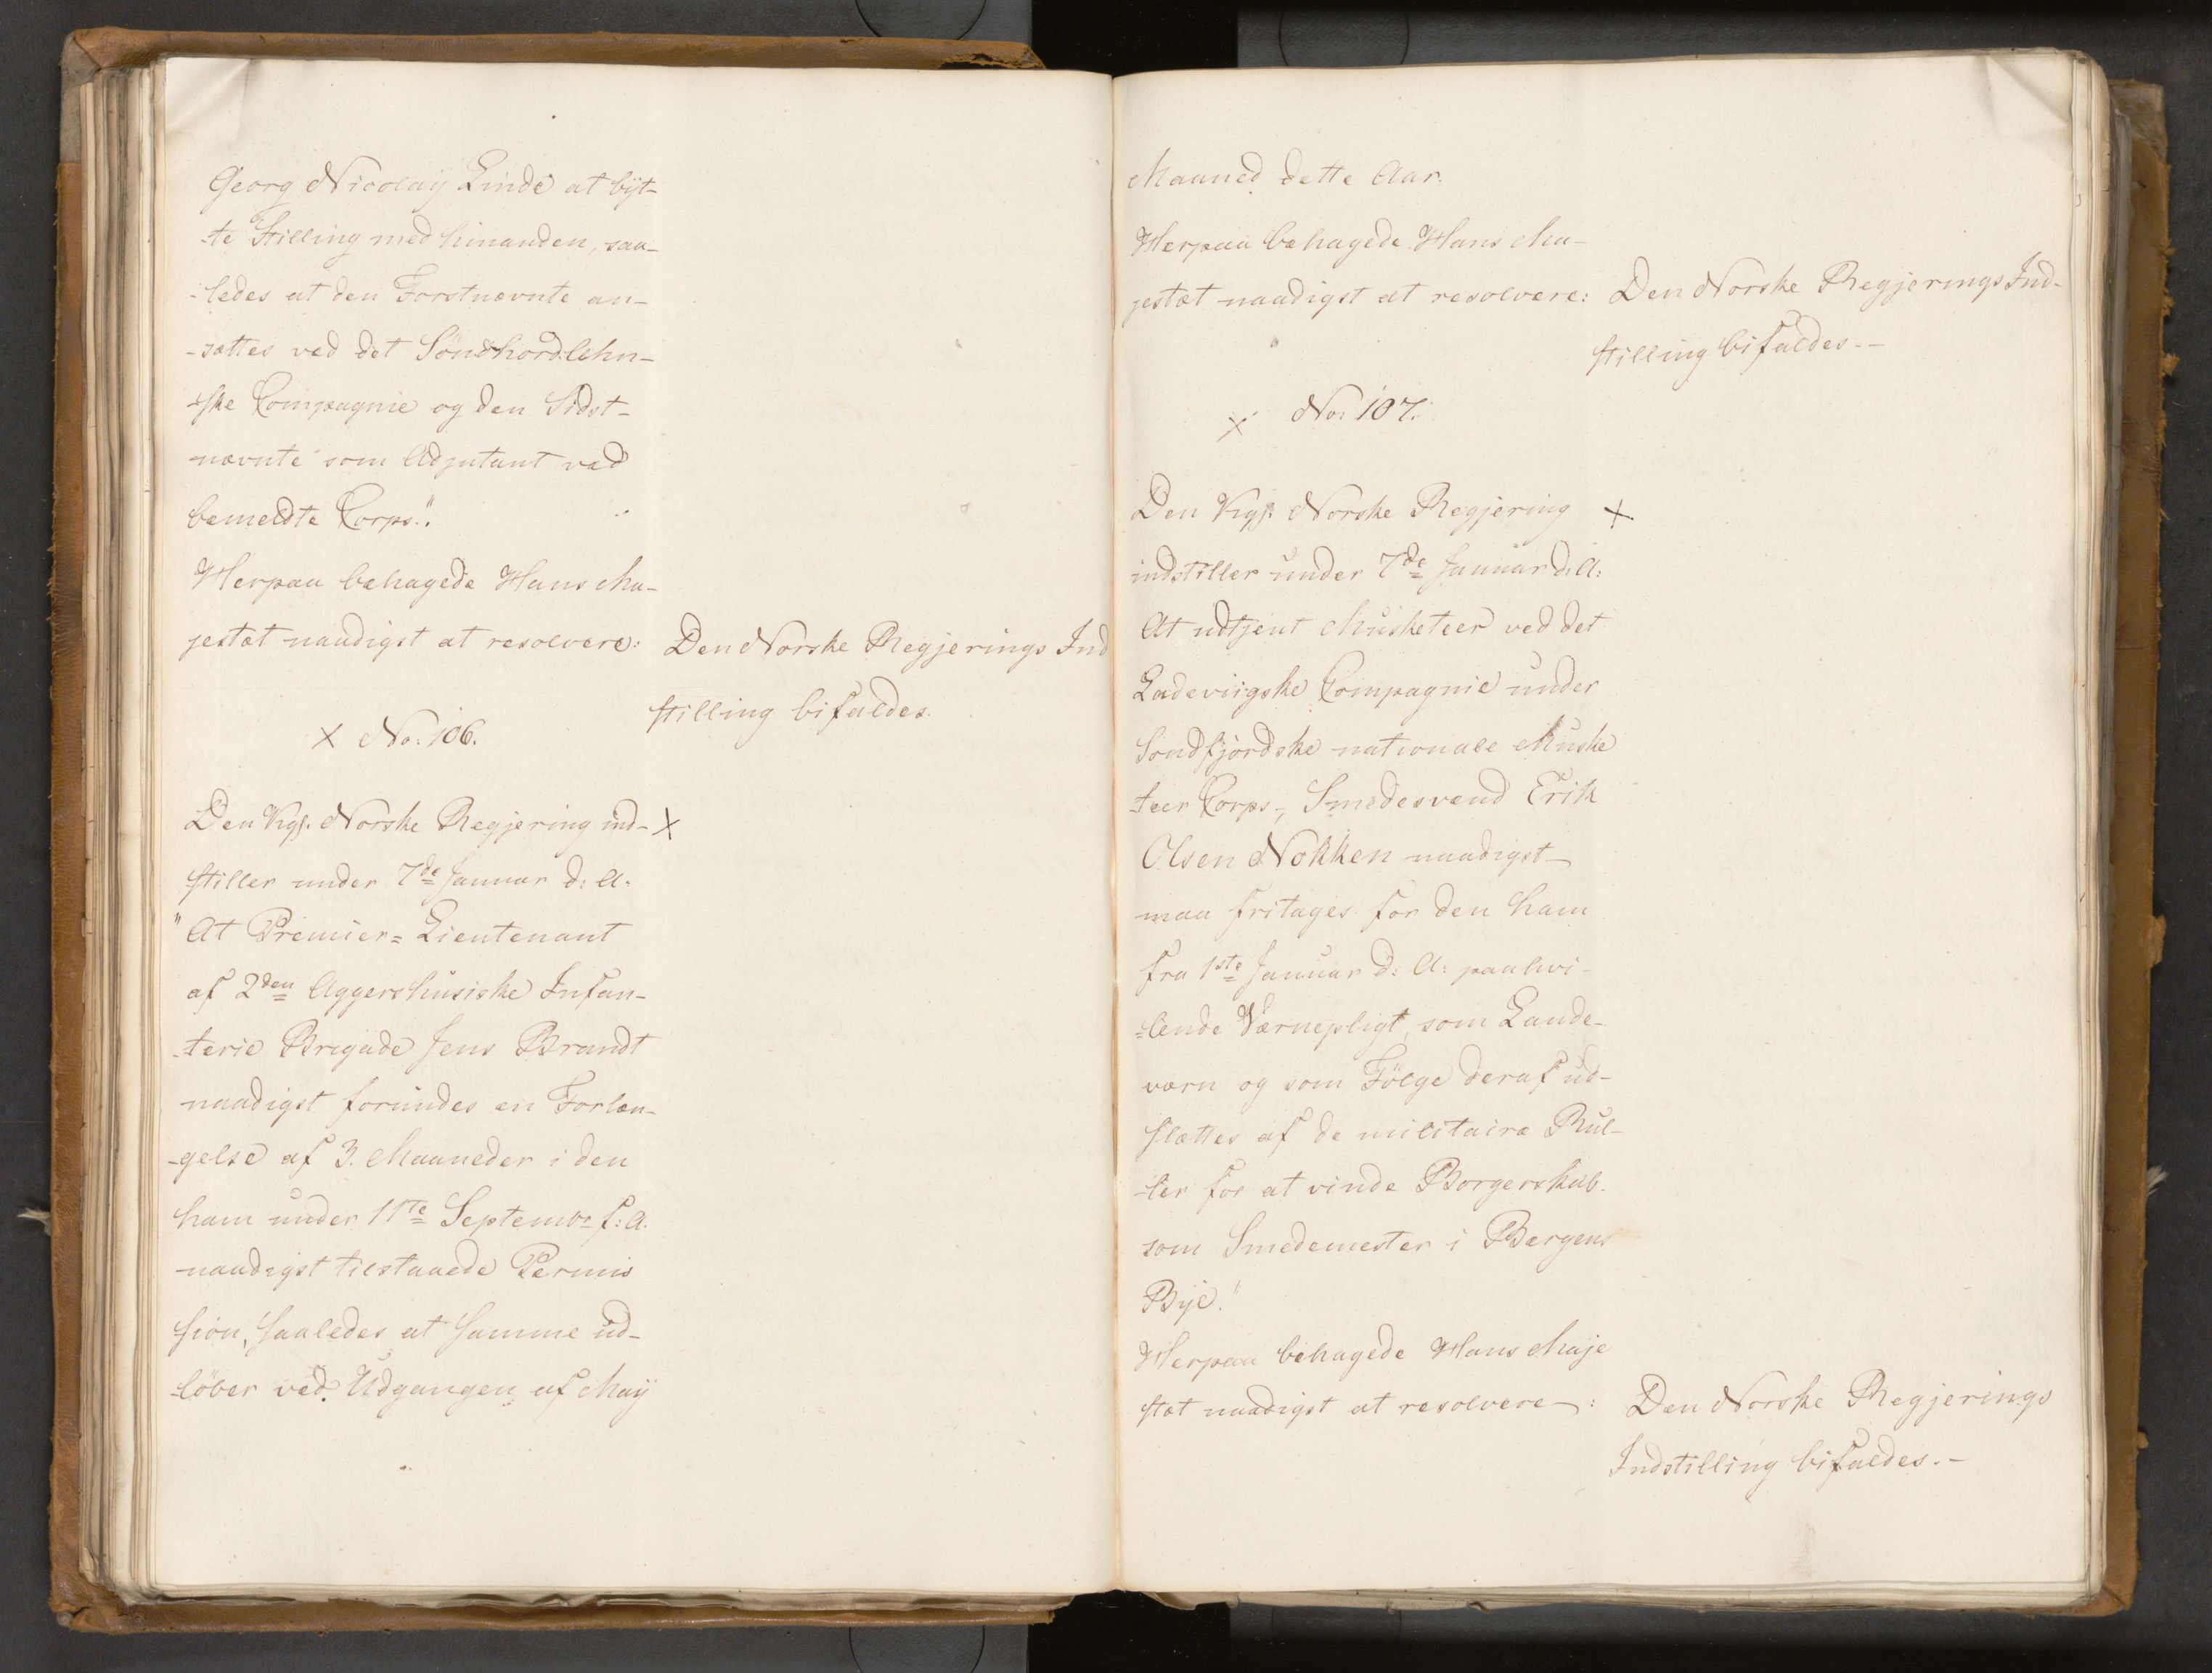 Georg Nicolaÿ Linde at bÿt-
-te Stilling med hinanden, saa-
-ledes at den Førstnævnte an-
-sættes ved det Söndhordlehn-
-ske Compagnie og den Sidst-
nævnte som Adjutant ved
bemeldte Corps".
Herpaa behagede Hans Ma-
jestæt naadigst at resolvere:
Den Norske Regjerings Ind
stilling bifaldes.
X No. 106.
Den Kgl. Norske Regjering ind- X
stiller under 7de Januar d: A.
"At Premier=Lieutenant
af 2den Aggershusiske Infan-
-terie Brigade Jens Brandt
naadigst forundes en Forlæn-
-gelse af 3. Maaneder i den
ham under 11te Septembr f: A.
naadigst tilstaaede Permis
sion, saaledes at samme ud-
-löber ved Udgangen af Maÿ
Maaned dette Aar.
Herpaa behagede Hans Ma-
jestæt naadigst at resolvere:
Den Norske Regjerings Ind-
stilling bifaldes.-
X No: 107.
Den Kgl. Norske Regjering X
indstiller under 7de Januar d: A:
At udtjent Musketeer ved det
Ladeviigske Compagnie under
Söndfjordske nationale Muske
-teer Corps-, Smedesvend Erik
Olsen Nökken naadigst
maa fritages for den ham
fra 1ste Januar d: A: paahvi-
-lende Værnepligt, som Lande-
værn og som Fölge deraf ud-
slættes af de militaire Rul-
-ler for at vinde Borgerskab.
som Smedemester i Bergens
Bÿe."
Herpaa behagede Hans Maje
stæt naadigst at resolvere:
Den Norske Regjerings
Indstilling bifaldes.-